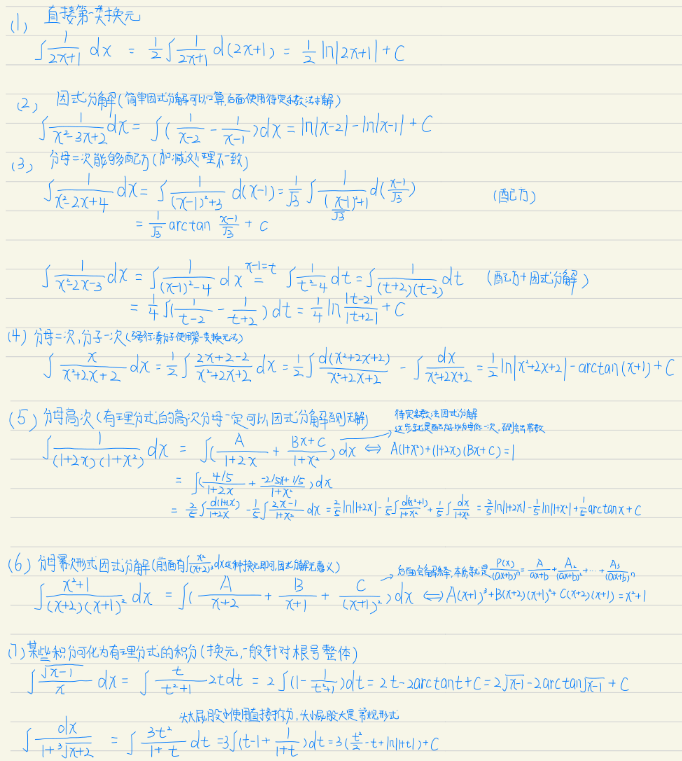 (1) 直接第一类换元
∫ 1/(2x+1) dx = 1/2 ∫ 1/(2x+1) d(2x+1) = 1/2 ln|2x+1| + C
(2) 因式分解(简单因式分解可以口算,后面使用待定系数法求解)
∫ 1/(x²-3x+2) dx = ∫ ( 1/(x-2) - 1/(x-1) ) dx = ln|x-2| - ln|x-1| + C
(3) 分母二次能够配方(加减处理不一致)
∫ 1/(x²-2x+4) dx = ∫ 1/((x-1)²+3) d(x-1) = 1/√3 ∫ 1/((x-1/√3)²+1) d(x-1/√3) (配方)
= 1/√3 arctan (x-1)/√3 + C
∫ 1/(x²-2x-3) dx = ∫ 1/((x-1)²-4) dx x-1=t = ∫ 1/(t²-4) dt = ∫ 1/((t+2)(t-2)) dt (配方+因式分解)
= 1/4 ∫ ( 1/(t-2) - 1/(t+2) ) dt = 1/4 ln |t-2|/|t+2| + C
(4) 分母二次,分子一次(强行凑分子使用第一类换元法)
∫ x/(x²+2x+2) dx = 1/2 ∫ (2x+2-2)/(x²+2x+2) dx = 1/2 ∫ d(x²+2x+2)/(x²+2x+2) - ∫ dx/(x²+2x+2) = 1/2 ln|x²+2x+2| - arctan(x+1) + C
(5) 分母高次(有理分式的高次分母一定可以因式分解到求解)
待定系数法因式分解
∫ 1/((1+2x)(1+x²)) dx = ∫ ( A/(1+2x) + (Bx+C)/(1+x²) ) dx ⇔ A(1+x²)+(1+2x)(Bx+C)=1
= ∫ ( (4/5)/(1+2x) + (-2/5x+1/5)/(1+x²) ) dx
= 2/5 ∫ d(1+2x)/(1+2x) - 1/5 ∫ (2x-1)/(1+x²) dx = 2/5 ln|1+2x| - 1/5 ∫ d(x²+1)/(1+x²) + 1/5 ∫ dx/(1+x²) = 2/5 ln|1+2x| - 1/5 ln|1+x²| + 1/5 arctan x + C
(6) 分母幂次形式因式分解
P(x)/(ax+b)ⁿ = A₁/(ax+b) + A₂/(ax+b)² + … + Aₙ/(ax+b)ⁿ
∫ (x²+1)/((x+2)(x+1)²) dx = ∫ ( A/(x+2) + B/(x+1) + C/(x+1)² ) dx ⇔ A(x+1)³+B(x+2)(x+1)²+C(x+2)(x+1)=x²+1
(7) 某些积分可化为有理分式的积分(换元,一般针对根号整体)
∫ √(x-1)/x dx = ∫ t/(t²+1) 2t dt = 2 ∫ (1 - 1/(t²+1)) dt = 2t - 2arctan t + C = 2√(x-1) - 2arctan√(x-1) + C
∫ dx/(1+³√(x+2)) = ∫ 3t²/(1+t) dt = 3∫(t-1+ 1/(1+t)) dt = 3( t²/2 - t + ln|1+t| ) + C